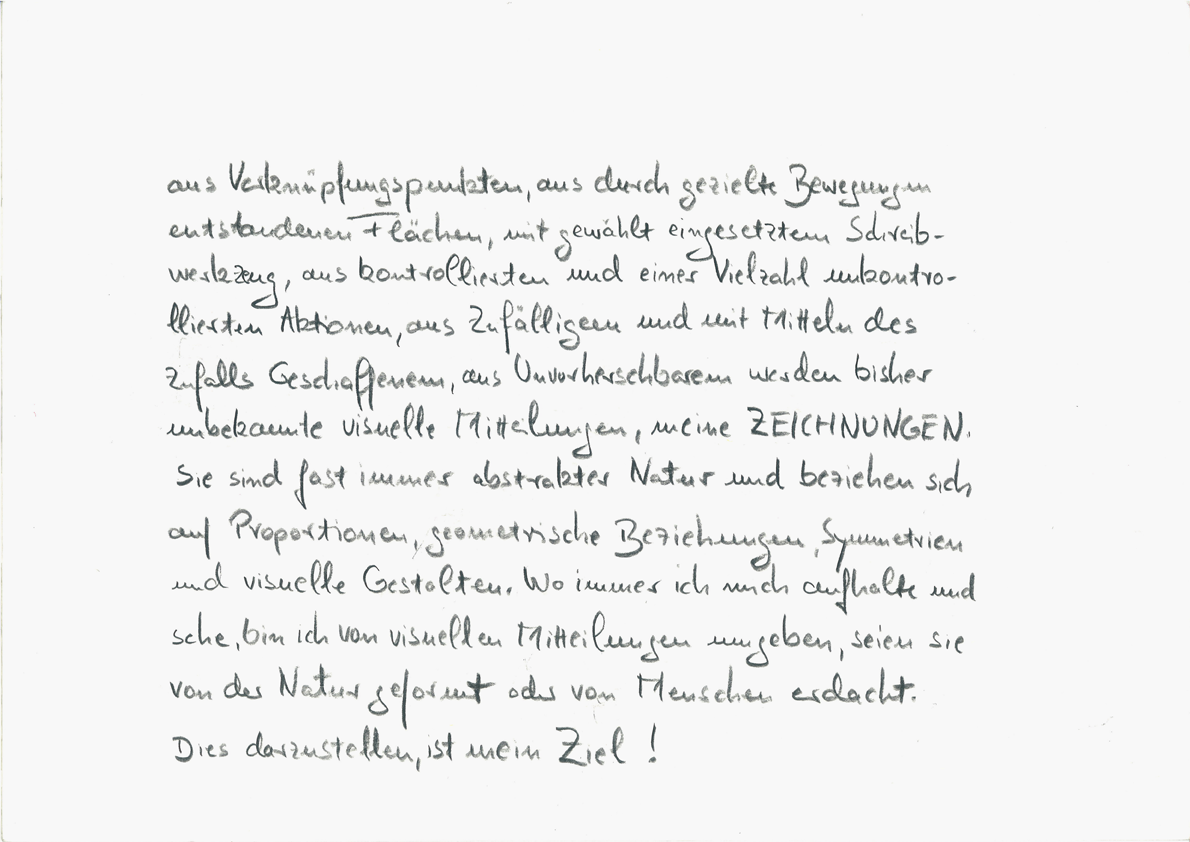 aus Verknüpfungspunkten, aus durch gezielte Bewegungen
entstandenen Flächen, mit gewählt eingesetztem Schreib-
werkzeug, aus kontrollierten und einer Vielzahl unkontro-
llierten Aktionen, aus Zufälligem und mit Mitteln des
Zufalls Geschaffenem, aus Unvorhersehbarem werden bisher
unbekannte visuelle Mitteilungen, meine ZEICHNUNGEN.
Sie sind fast immer abstrakter Natur und beziehen sich
auf Proportionen, geometrische Beziehungen, Symmetrien
und visuelle Gestalten. Wo immer ich mich aufhalte und
sehe, bin ich von visuellen Mitteilungen umgeben, seien sie
von der Natur geformt oder von Menschen erdacht.
Dies darzustellen, ist mein Ziel !